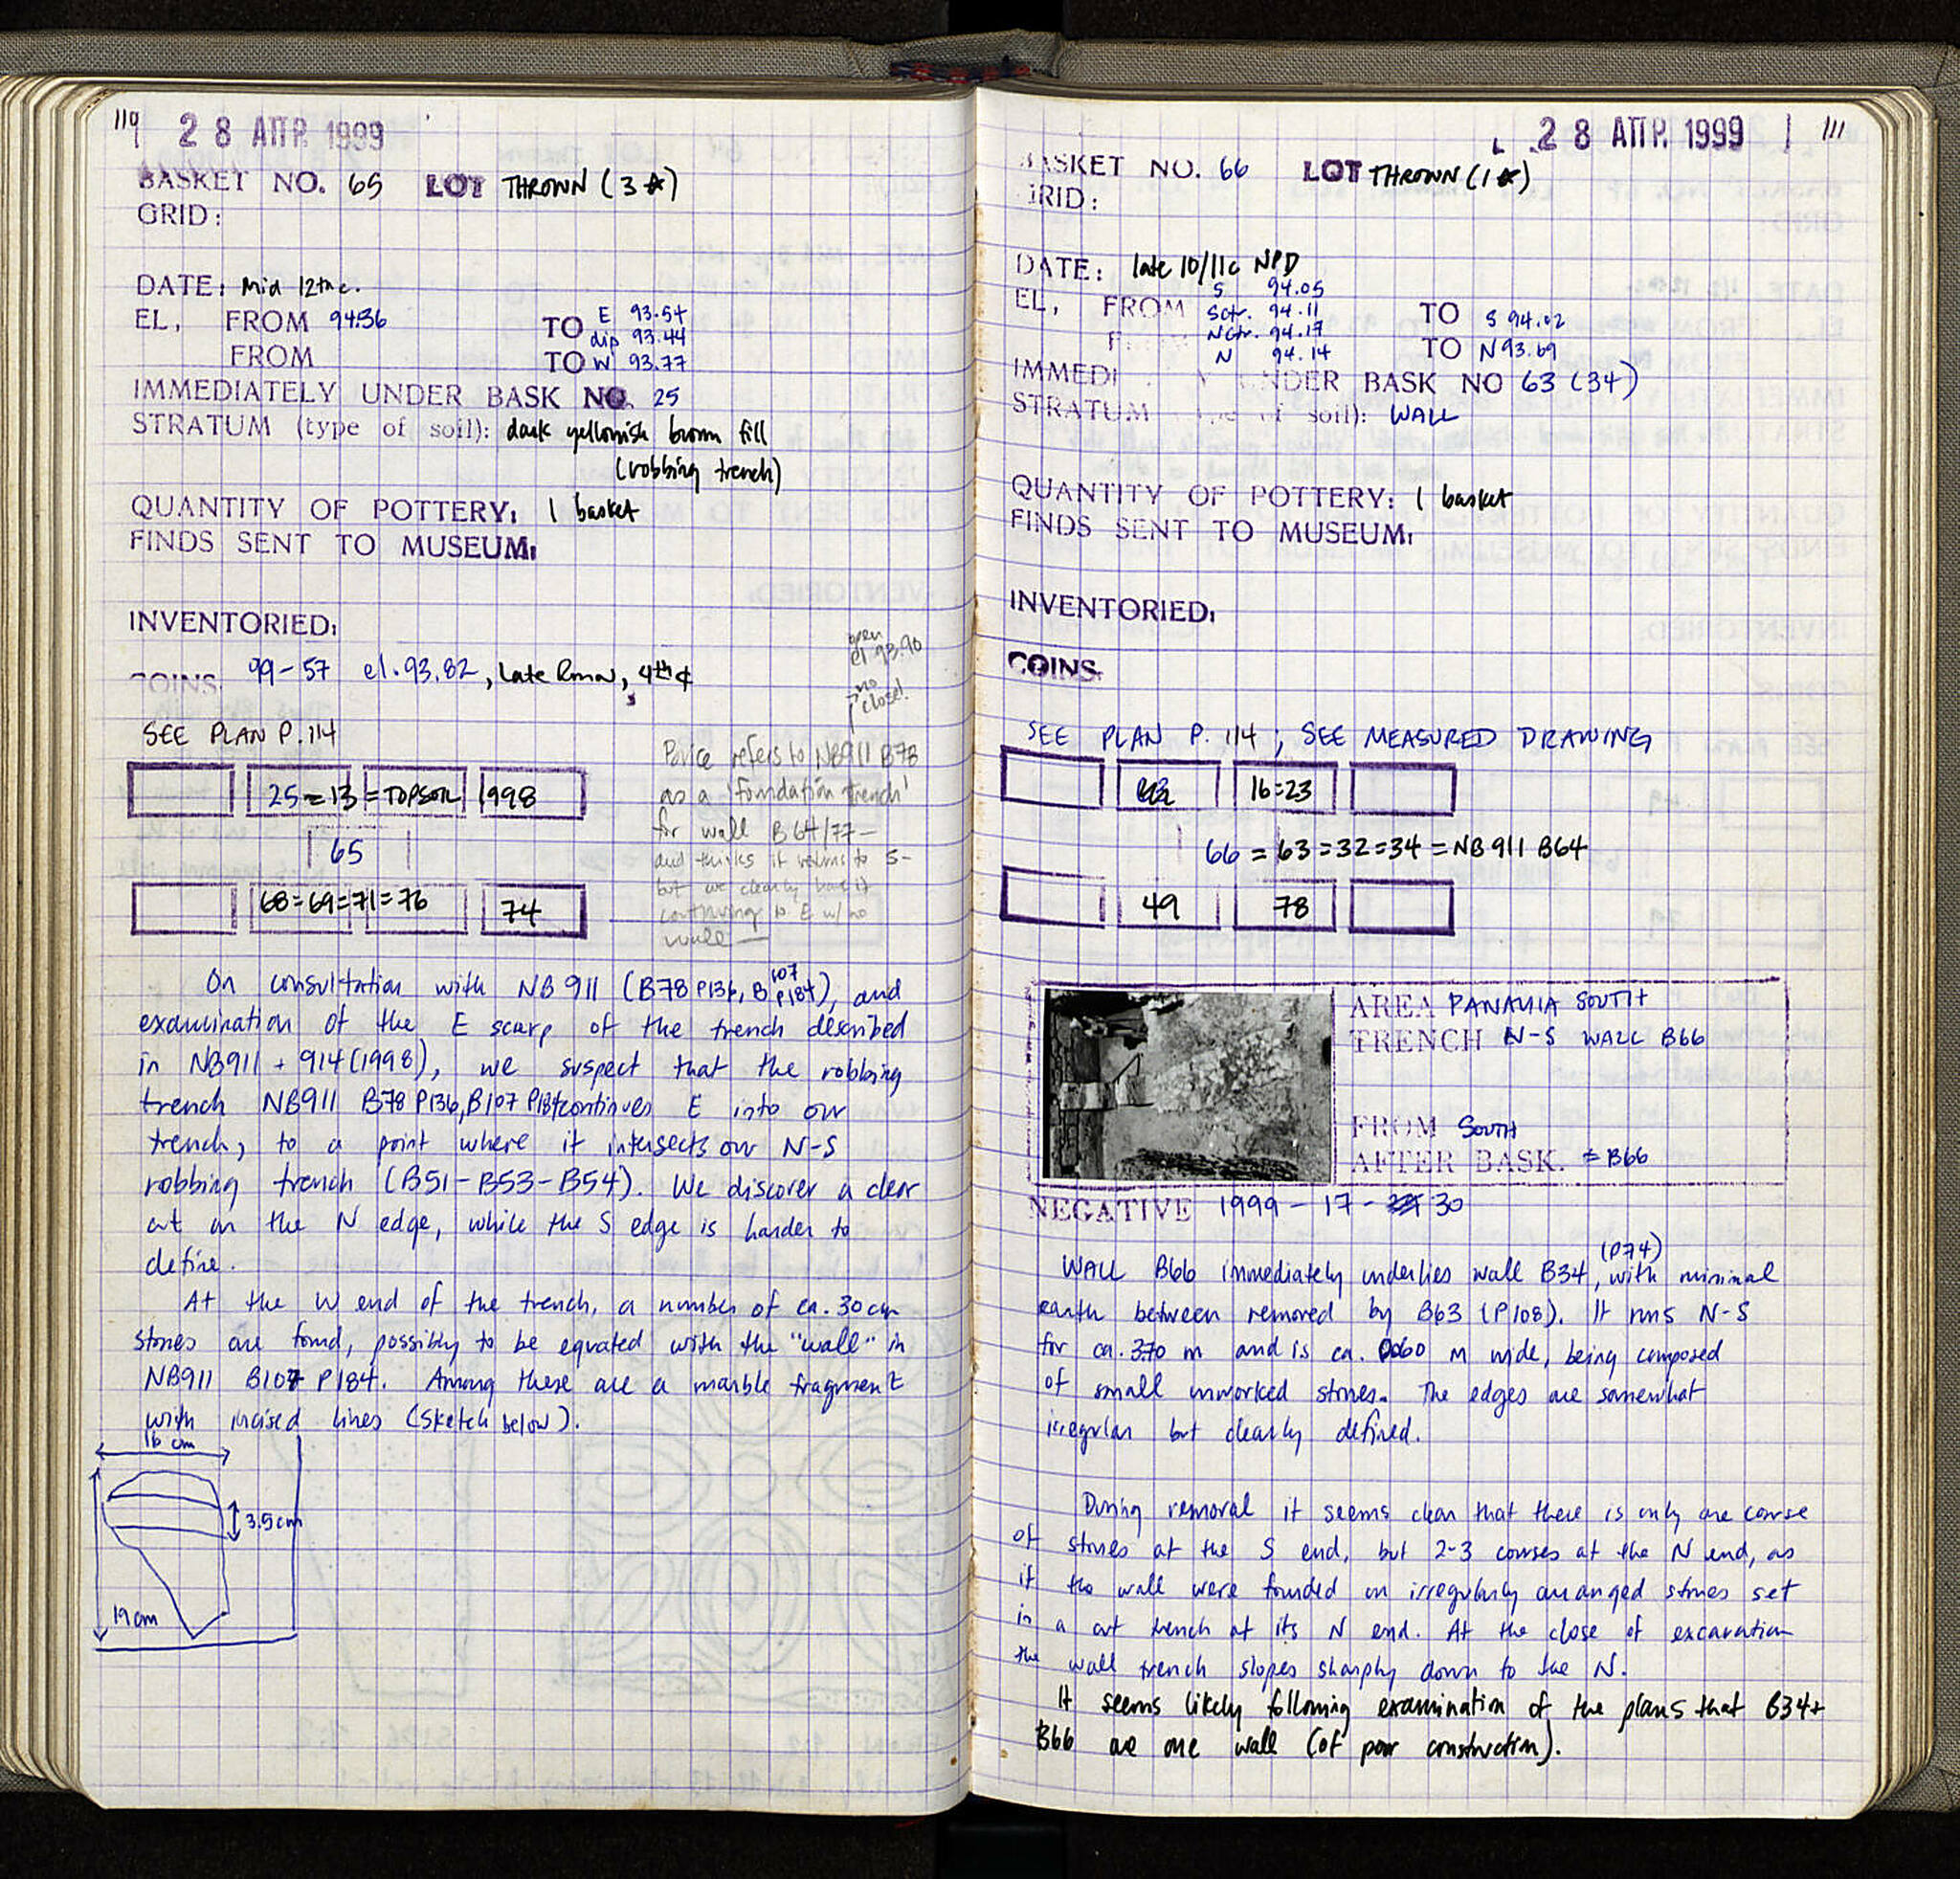 110
28 ΑΠΡ. 1999
BASKET NO. 65 LOT THROWN (3 )
GRID:
DATE: Mid 12th c.
EL, FROM 94.36 TO E 93.54
dip 93.44
FROM TO W 93.77
IMMEDIATELY UNDER BASK NO. 25
STRATUM (type of soil): dark yellowish brown fill
(robbing trench)
QUANTITY OF POTTERY: 1 basket
FINDS SENT TO MUSEUM:
INVENTORIED:
COINS 99-57 el. 93.82, Late Roman, 4th c
open
el 93.90
no
close!
SEE PLAN P. 114
25=13=TOPSOIL 1998
65
68=69=71=76 74
refers to NB911 B78
as a 'foundation trench'
for wall B64/77-
and thinks it returns to S-
but we clearly have it
continuing to E w/ no
wall—
On consultation with NB 911 (B78 P136, B107 P184), and
examination of the E scarp of the trench described
in NB911 + 914 (1998), we suspect that the robbing
trench NB911 B78 P136, B107 P184 continues E into our
trench, to a point where it intersects our N-S
robbing trench (B51-B53-B54). We discover a clear
cut on the N edge, while the S edge is harder to
define.
At the W end of the trench, a number of ca. 30 cm
stones are found, possibly to be equated with the "wall" in
NB911 B107 P184. Among these are a marble fragment
with incised lines (sketch below).
16 cm
3.5 cm
19 cm
28 ΑΠΡ. 1999 111
BASKET NO. 66 LOT THROWN (1 )
GRID:
DATE: late 10/11c NPD
EL, FROM S 94.05 TO S 94.02
Sctr. 94.11
FROM Nctr. 94.17 TO N 93.69
N 94.14
IMMEDI Y UNDER BASK NO 63 (34)
STRATUM (type of soil): WALL
QUANTITY OF POTTERY: 1 basket
FINDS SENT TO MUSEUM:
INVENTORIED:
COINS
SEE PLAN P. 114; SEE MEASURED DRAWING
16=23
66 = 63=32=34 = NB 911 B64
49 78
AREA PANAYIA SOUTH
TRENCH N-S WALL B66
FROM SOUTH
AFTER BASK. ± B66
NEGATIVE 1999-17- 30
WALL B66 immediately underlies wall B34 (P74), with minimal
earth between removed by B63 (P108). It runs N-S
for ca. 3.70 m and is ca. 0.60 m wide, being composed
of small unworked stones. The edges are somewhat
irregular but clearly defined.
During removal it seems clear that there is only one course
of stones at the S end, but 2-3 courses at the N end, as
if the wall were founded on irregularly arranged stones set
in a cut trench at its N end. At the close of excavation
the wall trench slopes sharply down to the N.
It seems likely following examination of the plans that B34+
B66 are one wall (of poor construction).